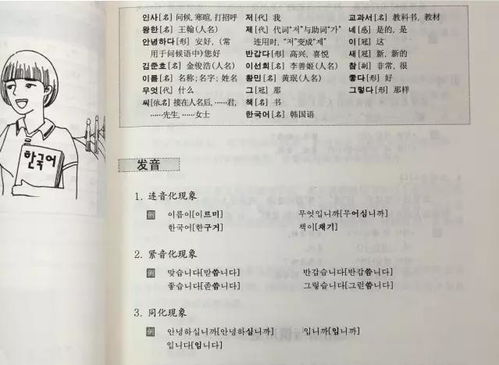 한국어
인사[名] 问候, 寒暄, 打招呼
왕한[名] 王翰(人名)
안녕하다[形] 安好, (常
用于问候语中)您好
김준호[名] 金俊浩(人名)
이름[名] 名称; 名字; 姓名
무엇[代] 什么
씨[依名] 接在人名后, ……君,
……先生, ……女士
저[代] 我
제[代] 代词"저"与助词"가"
连用时, "저"变成"제"
반갑다[形] 高兴, 喜悦
이선희[名] 李善姬(人名)
황민[名] 黄珉(人名)
그[冠] 那
책[名] 书
한국어[名] 韩国语
교과서[名] 教科书, 教材
네[感] 是的, 是
이[冠] 这
새[冠] 新, 新的
참[副] 非常, 很
좋다[形] 好
그렇다[形] 那样
发音
1. 连音化现象
例 이름이[이르미] 무엇입니까[무어십니까]
한국어[한구거] 책이[채기]
2. 紧音化现象
例 맞습니다[맏씁니다] 반갑습니다[반갑씁니다]
좋습니다[존씁니다] 그렇습니다[그런씁니다]
3. 同化现象
例 안녕하십니까[안녕하심니까] 입니까[임니까]
입니다[임니다]